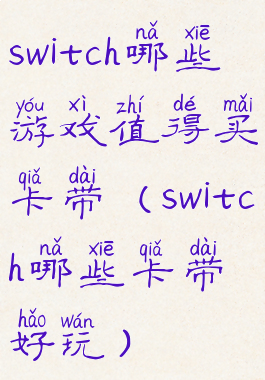 nǎ xiē
switch哪些
yóu xì zhí dé mǎi
游戏值得买
qiǎ dài
卡带（switc
nǎ xiē qiǎ dài
h哪些卡带
hǎo wán
好玩）